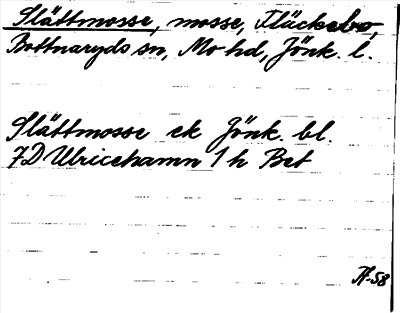 Slättmosse, mosse, Fläckebo,
Bottnaryds sn, Mo hd, Jönk. l.
Slättmosse ek Jönk. bl.
7D Ulricehamn 1 h Bet